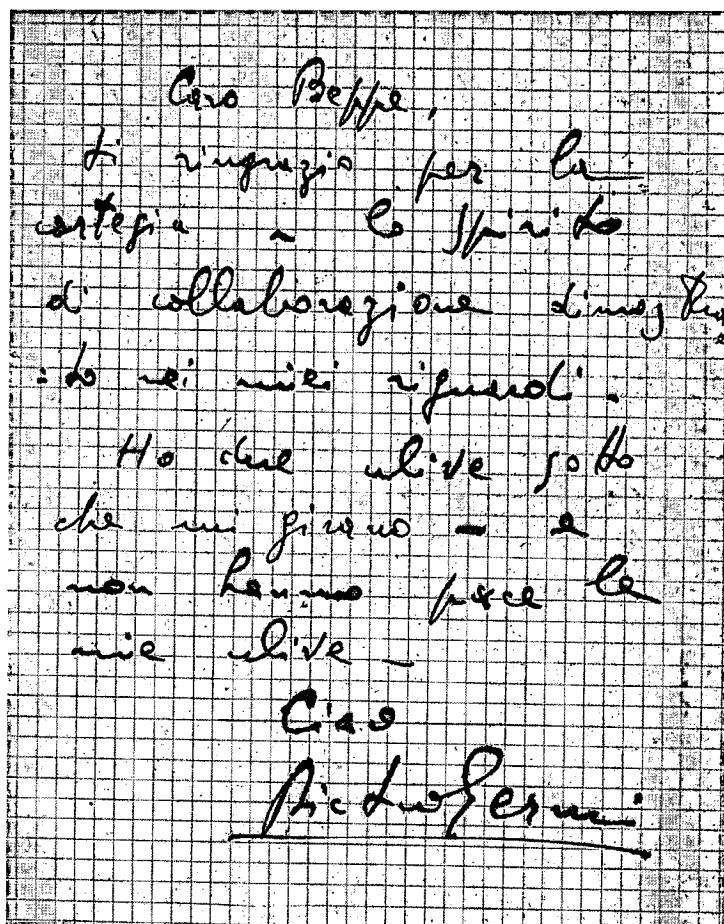 Caro Beppe,
ti ringrazio per la
cortesia e lo spirito
di collaborazione dimostra
=to nei miei riguardi.
Ho due ulive sotto
che mi girano - e
non hanno pace le
mie ulive -
Ciao
Pietro Germi